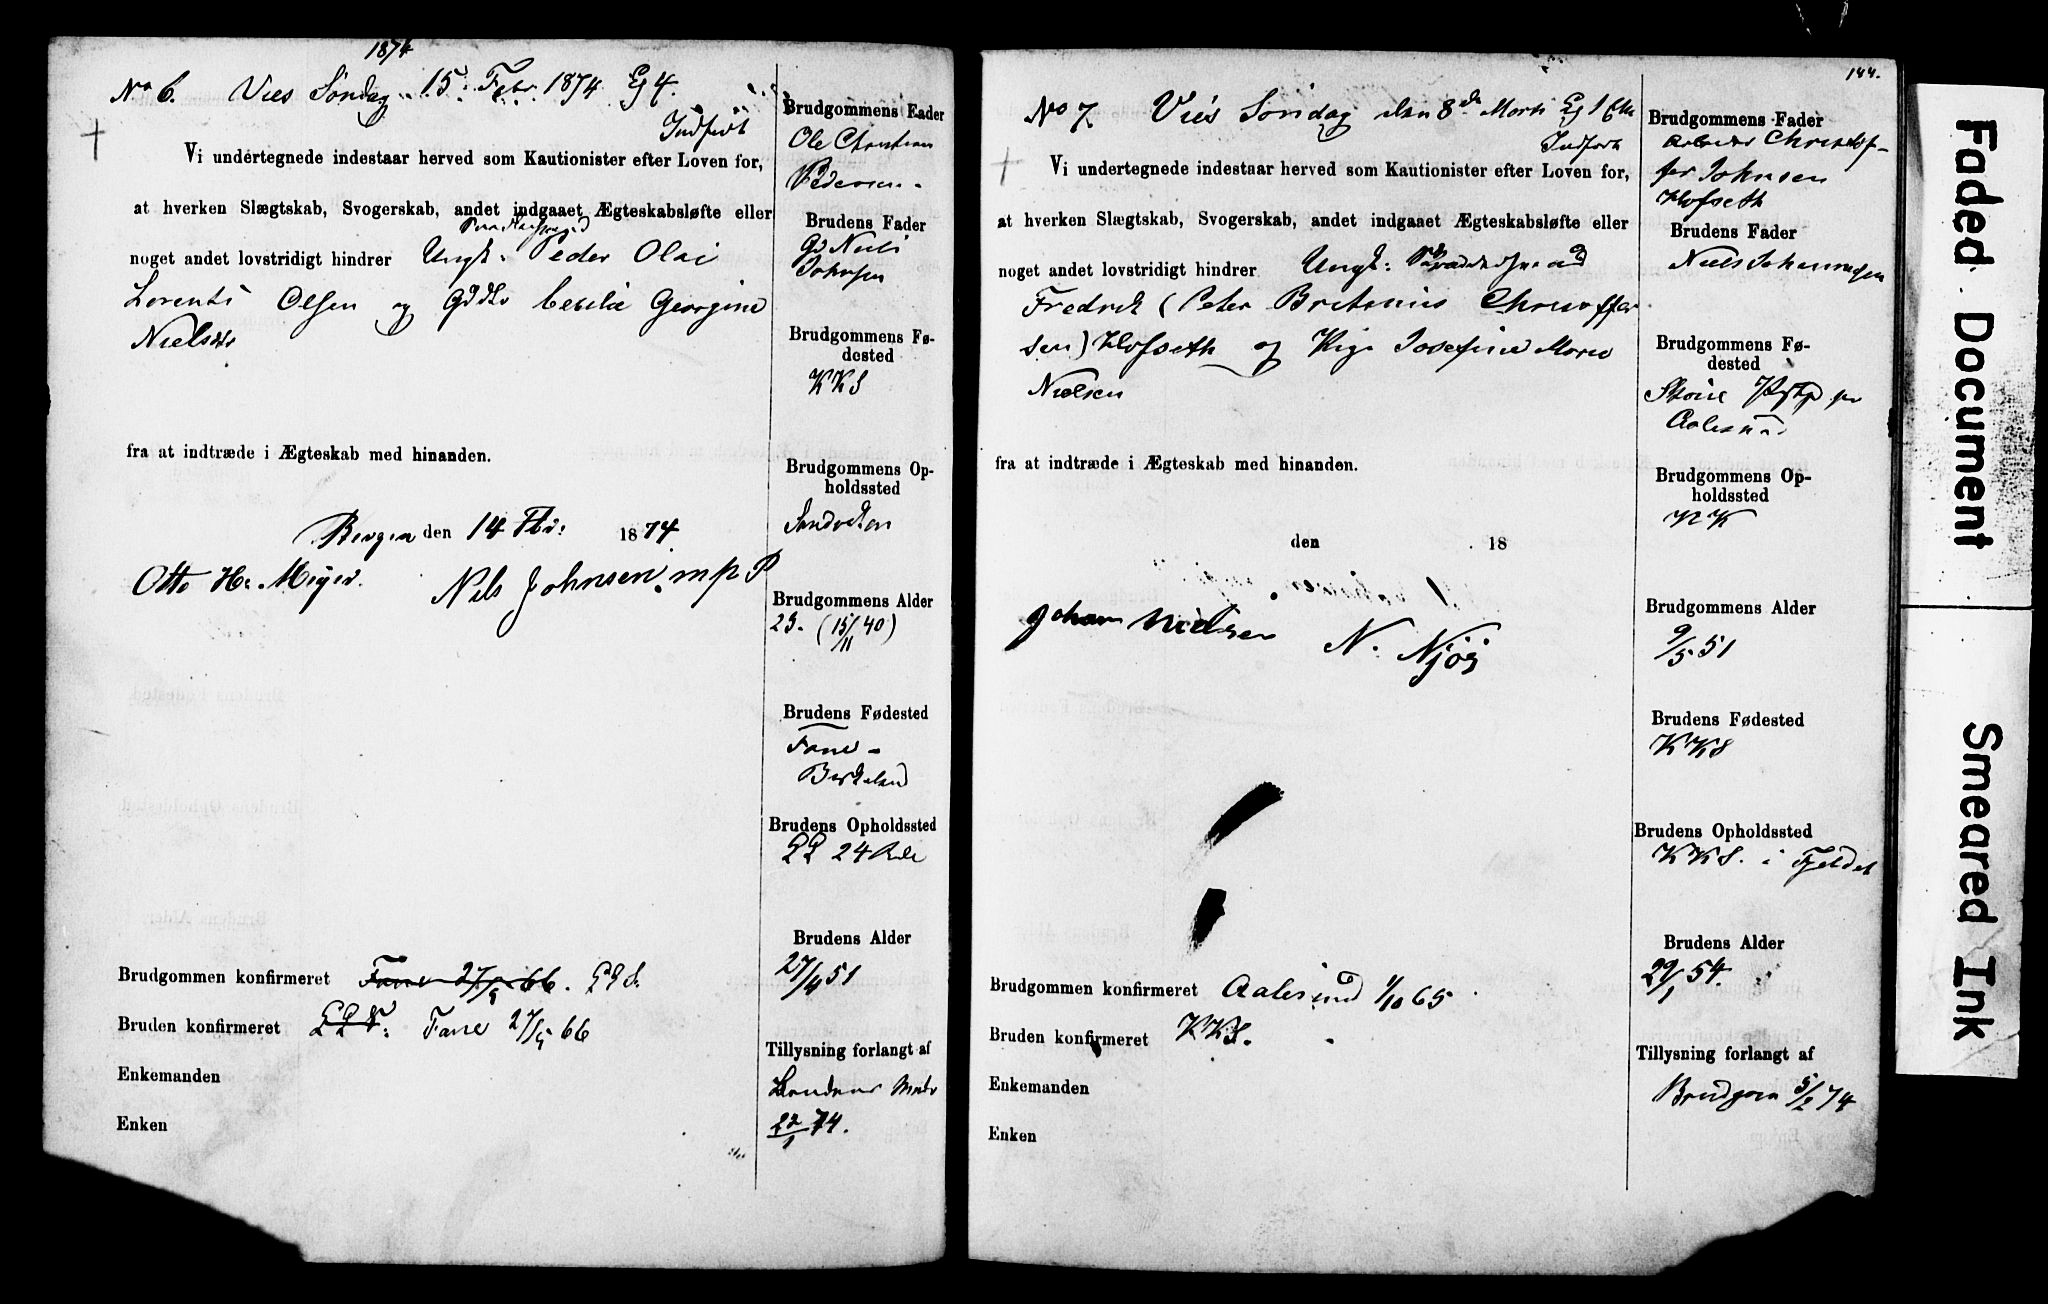 1874
No 6. Vies Søndag 15 Febr 1874 Eg 4.
Indført
Vi undertegnede indestaar herved som Kautionister efter Loven for,
at hverken Slægtskab, Svogerskab, andet indgaaet Ægteskabsløfte eller
noget andet lovstridigt hindrer Ungk. Peder Olai
Lorents Olsen og Gddtr Cecilie Georgine
Nielsdtr
fra at indtræde i Ægteskab med hinanden.
Bergen den 14 Fbr: 1874
Otto H. Meyer. Nils Johnsen. m p P
Brudgommen konfirmeret Fane 27/5 66.
Bruden konfirmeret Fane 27/5 66
Enkemanden
Enken
Brudgommens Fader
Ole Christian
Pedersen
Brudens Fader
Gd Niels
Johnsen
Brudgommens Fø-
dested
KKS
Brudgommens Op-
holdssted
Sandviken
Brudgommens Alder
23. (15/11 40)
Brudens Fødested
Fane
Birkeland
Brudens Opholdssted
24 Rode
Brudens Alder
27/4 51
Tillysning forlangt af
22/1 74.
144.
No 7. Vies Søndag den 8de Marts Eg
Indført
Vi undertegnede indestaar herved som Kautionister efter Loven for,
at hverken Slægtskab, Svogerskab, andet indgaaet Ægteskabsløfte eller
noget andet lovstridigt hindrer Ungk:
Fredrik (Peter Britanius Christoffer
sen) Hofseth og Pige Josefine Marie
Nielsen
fra at indtræde i Ægteskab med hinanden.
den 18
Johan Nielsen N. Njøs
Brudgommen konfirmeret Aalesund 1/10 65
Bruden konfirmeret KKS.
Enkemanden
Enken
Brudgommens Fader
Arbeider Christof-
fer Johnsen
Hofseth
Brudens Fader
Niels Johannesen
Brudgommens Fø-
dested
Aalesund
Brudgommens Op-
holdssted
NK
Brudgommens Alder
9/5 51
Brudens Fødested
KKS
Brudens Opholdssted
KKS. i Fjeldet
Brudens Alder
29/1 54.
Tillysning forlangt af
Brudgom 5/2 74
Faded Document
Smeared Ink